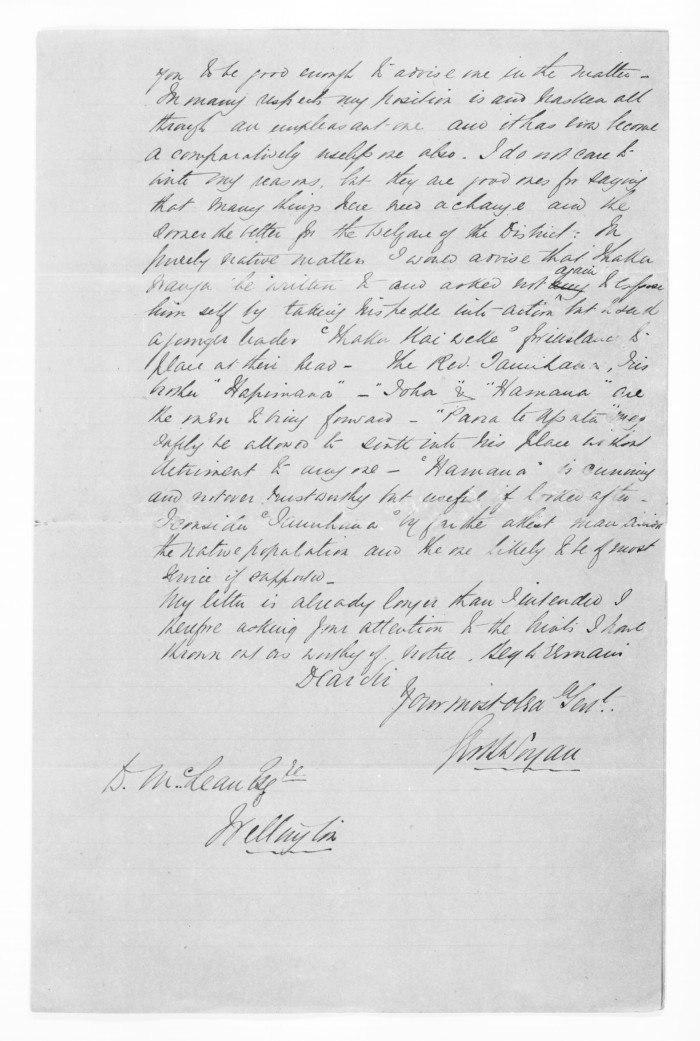 you to be good enough to advise me in the matter -
In many respects my position is and has been all
through an unpleasant one and it has now become
a comparatively useless one also. I do not care to
write my reasons, but they are good ones for saying
that many things here need a change and the
sooner the better for the welfare of the District: In
purely native matters I would advise that Ihaka
be written to and asked not again to expose
him self by taking his people into action but send
a younger leader "Ihaka Kai weke" for instance to
place at their head - The Rev. Tamihana, his
brother "Hapimana" - "Ioha" & "Hamana" are
the men to bring forward - "Paora te Apatu" may
safely be allowed to sink into his place without
detriment to any one - "Hamana" is cunning
and not over trustworthy but useful if looked after -
I consider "Tamihana" by far the ablest man
the native population and the one likely to be of most
service if supported -
My letter is already longer than I intended I
therefore asking your attention to the hints I have
thrown out as worthy of notice. Beg to remain
Dear Sir
Your most obed Servt.
D. McLean Esqre
Wellington